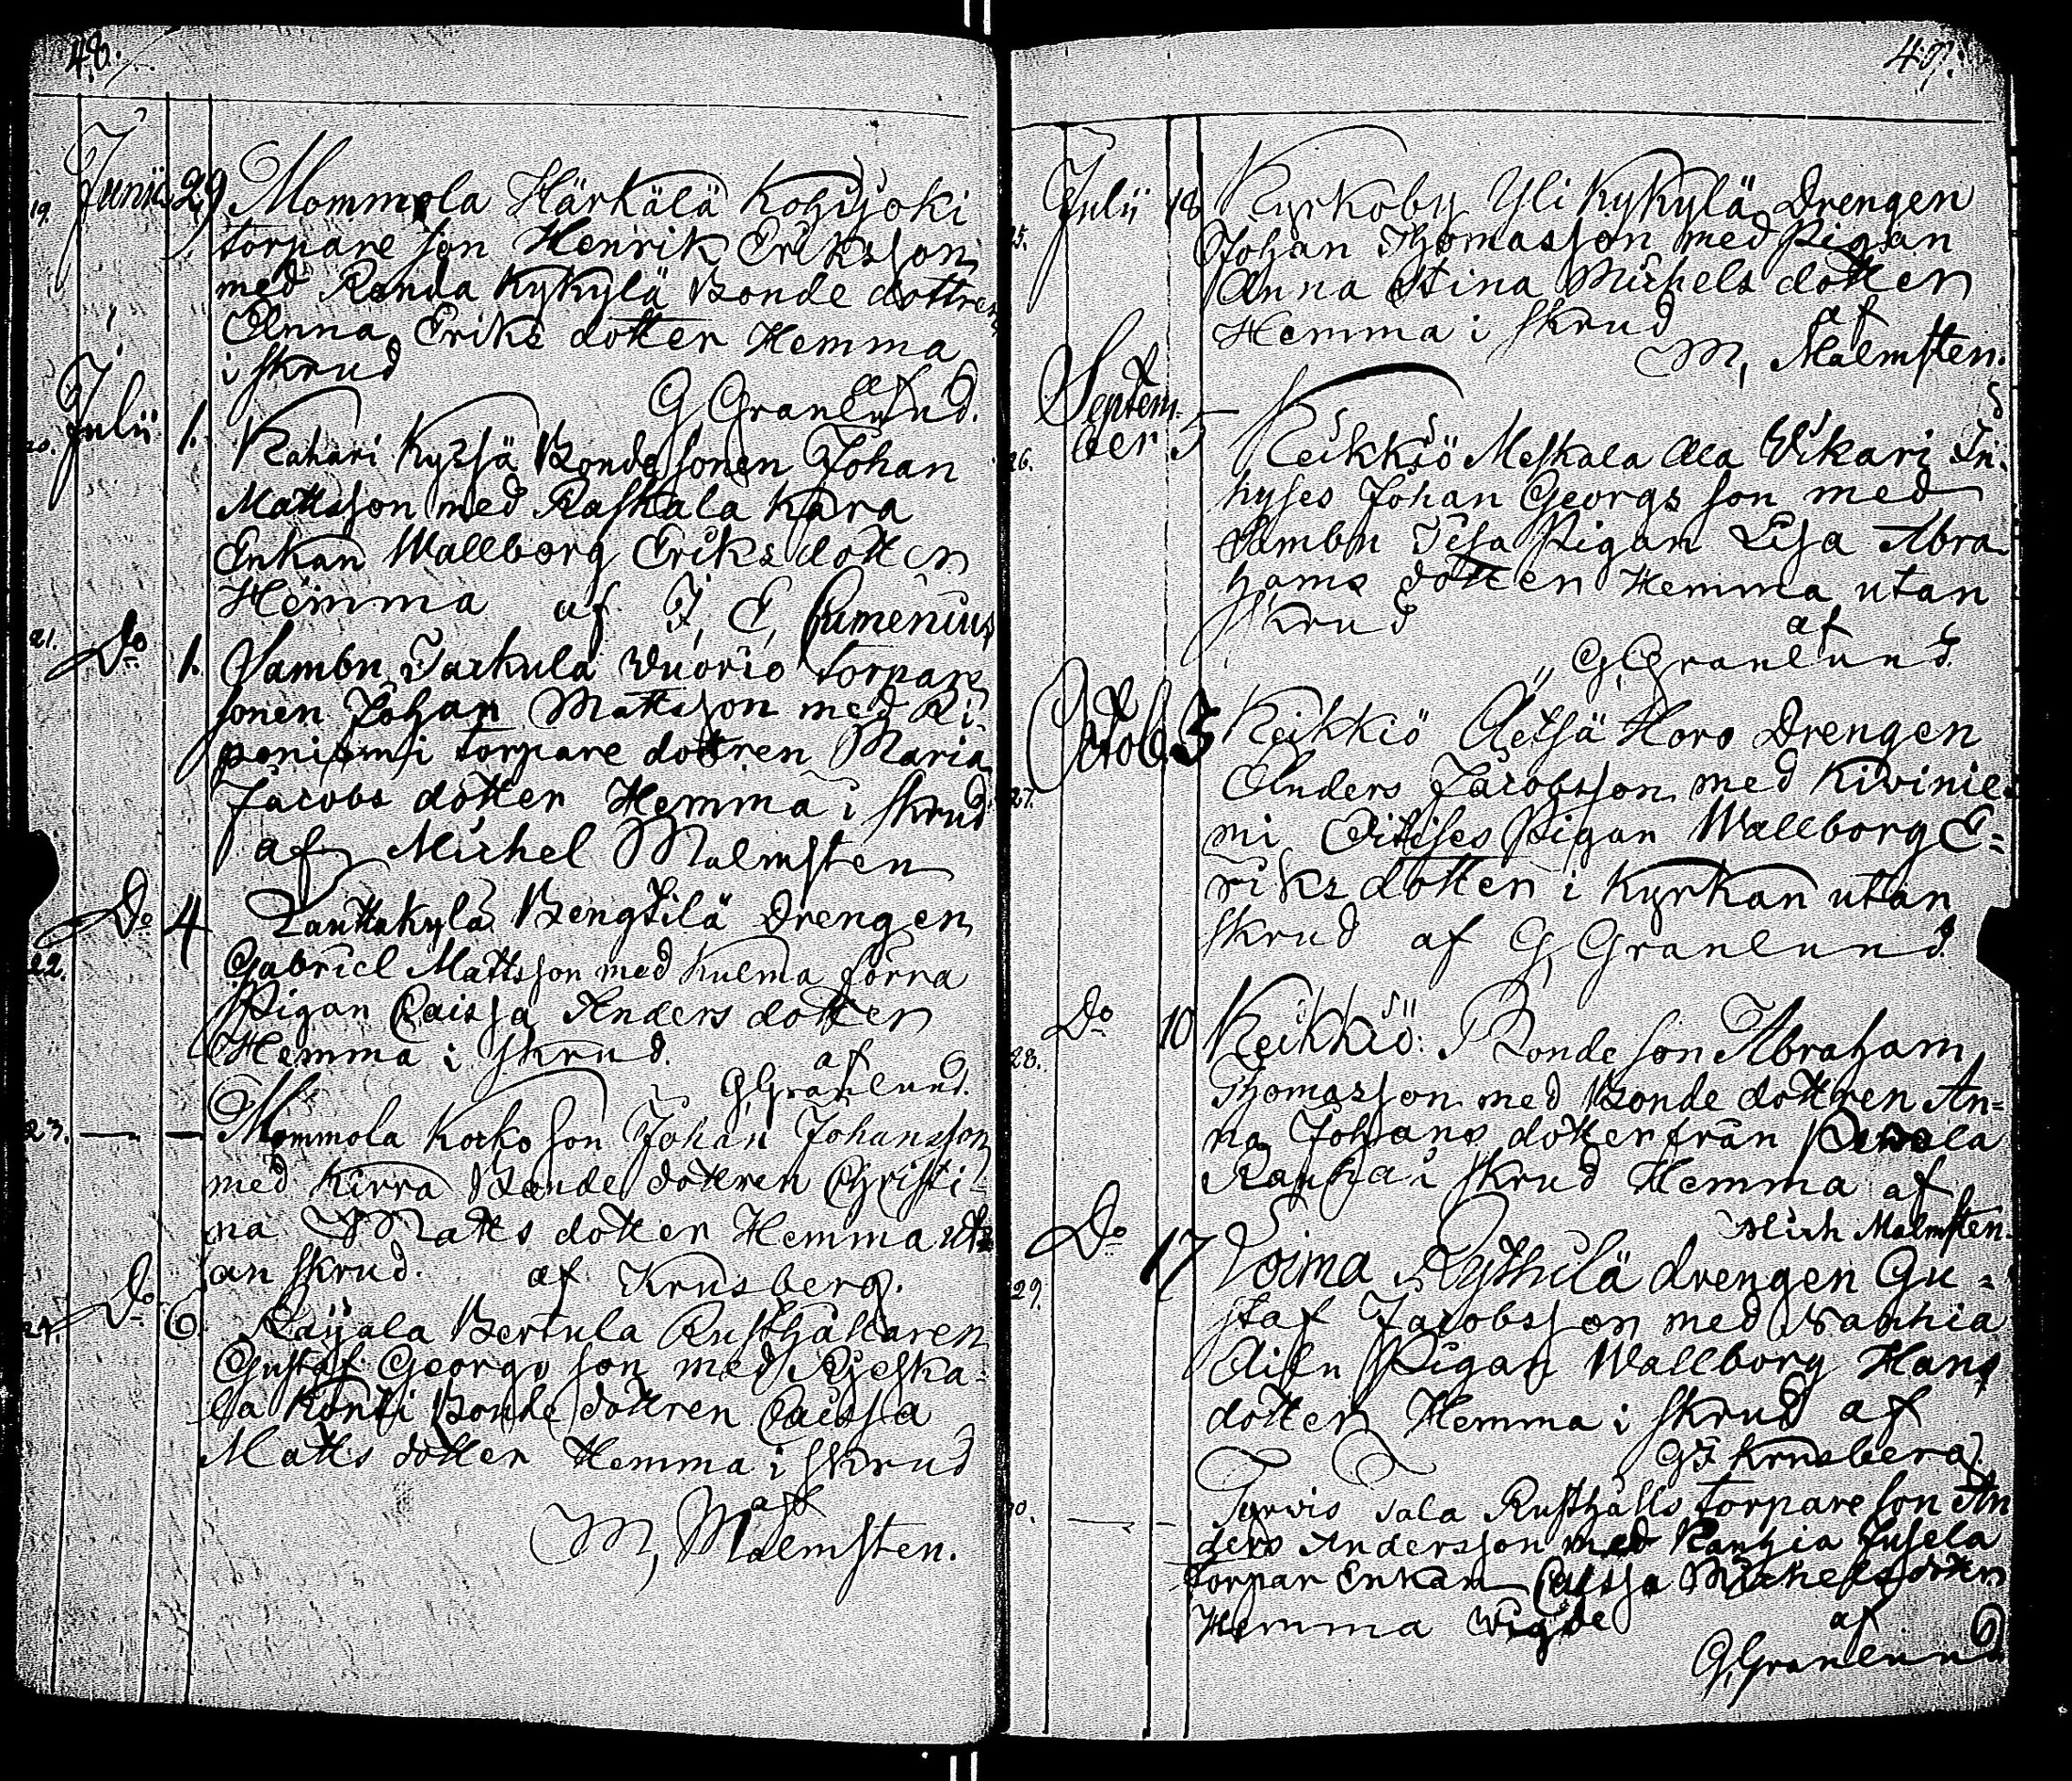 48.
19. Junii 29 Mommola Härkälä Kohijoki
torpare son Henrik Eriksson
med Ronda Kykylä Bonde dottren
Anna Eriks dotter Hemma
i skrud af
G Granlund.
20. Julii 1. Kahari Kyssä Bonde sonen Johan
Mattsson med Raskala Kara
Enkan Wallborg Eriks dotter
Hemma af J, E, Pumenius
21. Do 1. Sambu Tarkula Vuorio torpare
sonen Johan Mattsson med Ri-
poniemi torpare dottren Maria
Jacobs dotter Hemma i skrud
af Michel Malmsten
22. Do 4 Lauttakylä Bengtilä Drengen
Gabriel Mattsson med Kulma förra
Pigan Caissa Anders dotter
Hemma i skrud. af
G Granlund.
23. — — Mommola Korko son Johan Johansson
med Kirra Bonde dottren Christi-
na Matts dotter Hemma ut-
an skrud. af Krusberg.
24. Do 6. Raijala Bertula Rusthållaren
Gustaf Georgs son med Rjeska-
la Kontti Bonde dottren Caissa
Matts dotter Hemma i skrud
af
M, Malmsten.
49.
25. Julii 18 Kyrkoby Yli Kykylä Drengen
Johan Thomasson med Pigan
Anna Stina Michels dotter
Hemma i skrud af
M, Malmsten.
26. Septem-
ber 5 Keikkiö Meskala Ala Wikari In-
hyses Johan Georgs son med
Sambu Pigan Lisa Abra-
hams dotter Hemma utan
skrud af
G Granlund.
27. Octob. 5 Keikkiö Aetsä Horo Drengen
Anders Jacobsson med Kiwinie-
mi Pigan Wallborg E=
riks dotter i Kyrkan utan
skrud af G, Granlund.
28. Do 10 Keikkiö: Bonde son Abraham
Thomasson med Bonde dottren An=
na Johans dotter från
i skrud Hemma af
Mich Malmsten.
29. Do 17 Voima Kythilä drengen Gu=
staf Jacobsson med Vanhia
Pigan Wallborg Hans
dotter Hemma i skrud af
G F Krusberg.
30. — — Tyrvis Sala Rusthålls torpare son An
ders Andersson med
torpar Enkan Caissa Michels dotter
Hemma Vigde af
G, Granlund